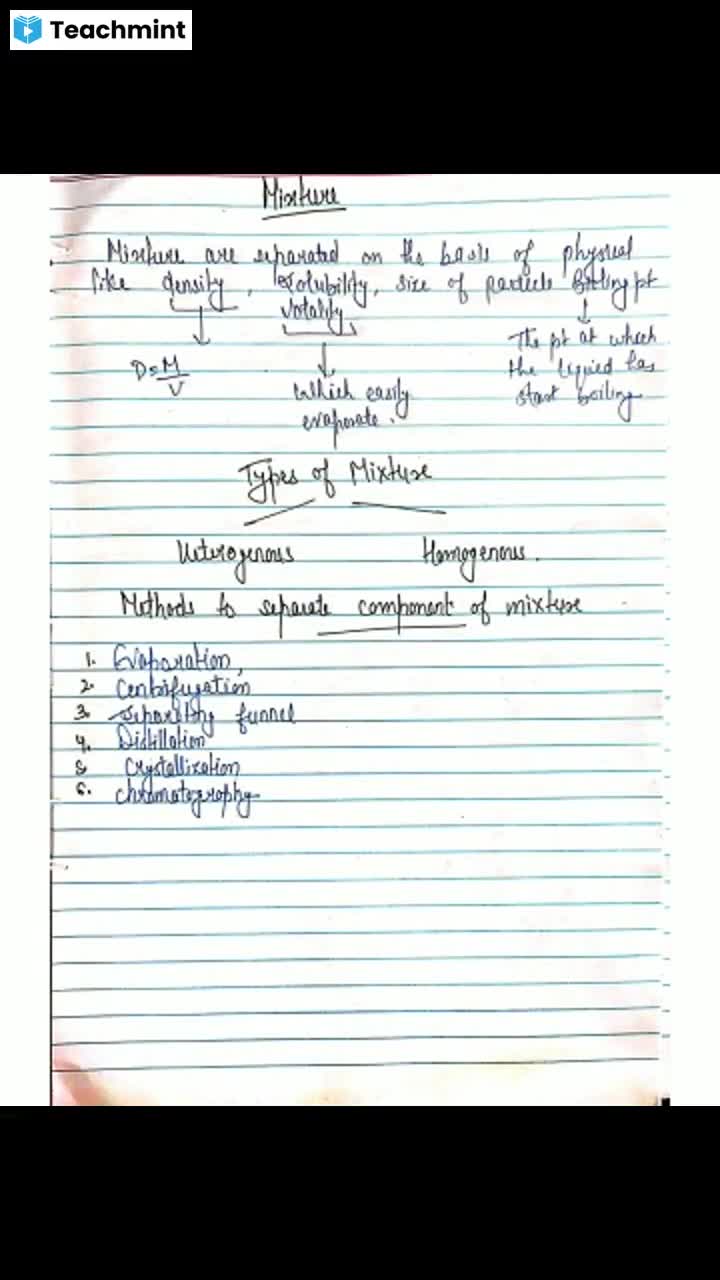 Teachmint
Mixture
Mixture are separated on the basis of physical
like density, solubility, size of particle Boiling pt
Votality
D = M/V
Which easily
evaporate.
The pt at which
the liquied has
start boiling
Types of Mixture
Heterogenous Homogenous.
Methods to separate component of mixture
1. Evaporation,
2. Centrifugation
3. Separating funnel
4. Distillation
5. Crystallization
6. Chromatography